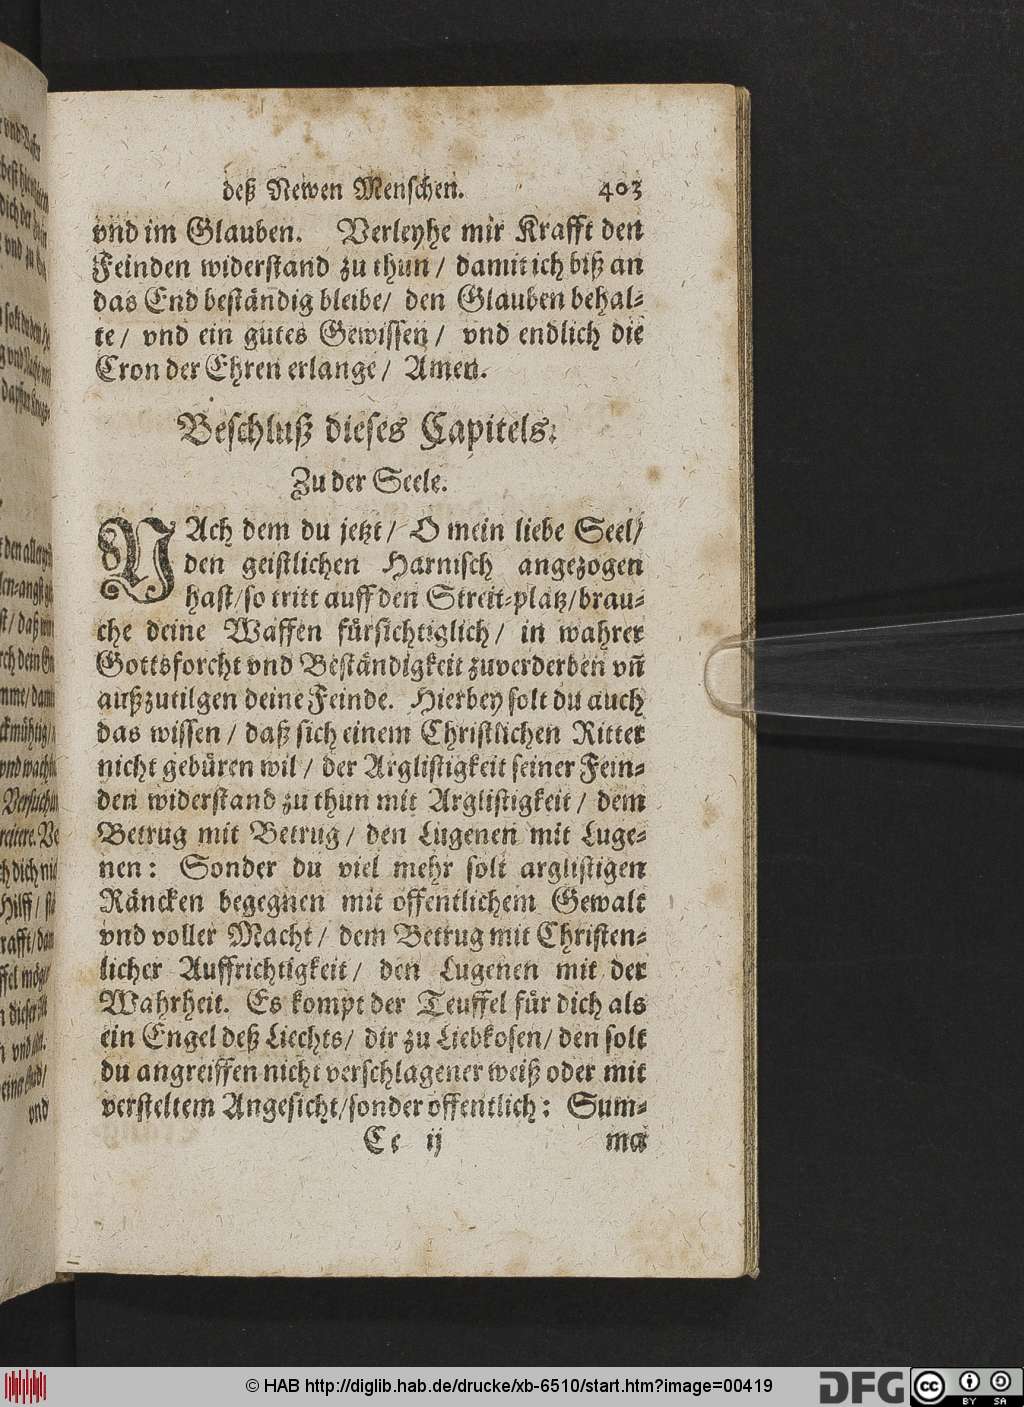 deß Newen Menschen. 403
vnd im Glauben. Verleyhe mir Krafft den
Feinden widerstand zu thun / damit ich biß an
das End beständig bleibe / den Glauben behal⸗
te / vnd ein gutes Gewissen / vnd endlich die
Cron der Ehren erlange / Amen.
Beschluß dieses Capitels:
Zu der Seele.
NAch dem du jetzt / O mein liebe Seel /
den geistlichen Harnisch angezogen
hast / so tritt auff den Streit⸗platz / brau⸗
che deine Waffen fürsichtiglich / in wahrer
Gottsforcht vnd Beständigkeit zuverderben vñ
außzutilgen deine Feinde. Hierbey solt du auch
das wissen / daß sich einem Christlichen Ritter
nicht gebüren wil / der Arglistigkeit seiner Fein⸗
den widerstand zu thun mit Arglistigkeit / dem
Betrug mit Betrug / den Lugenen mit Luge⸗
nen: Sonder du viel mehr solt arglistigen
Räncken begegnen mit offentlichem Gewalt
vnd voller Macht / dem Betrug mit Christen⸗
licher Auffrichtigkeit / den Lugenen mit der
Wahrheit. Es kompt der Teuffel für dich als
ein Engel deß Liechts / dir zu Liebkosen / den solt
du angreiffen nicht verschlagener weiß oder mit
versteltem Angesicht / sonder offentlich: Sum⸗
Cc ij ma
© HAB http://diglib.hab.de/drucke/xb-6510/start.htm?image=00419
DFG
cc BY SA